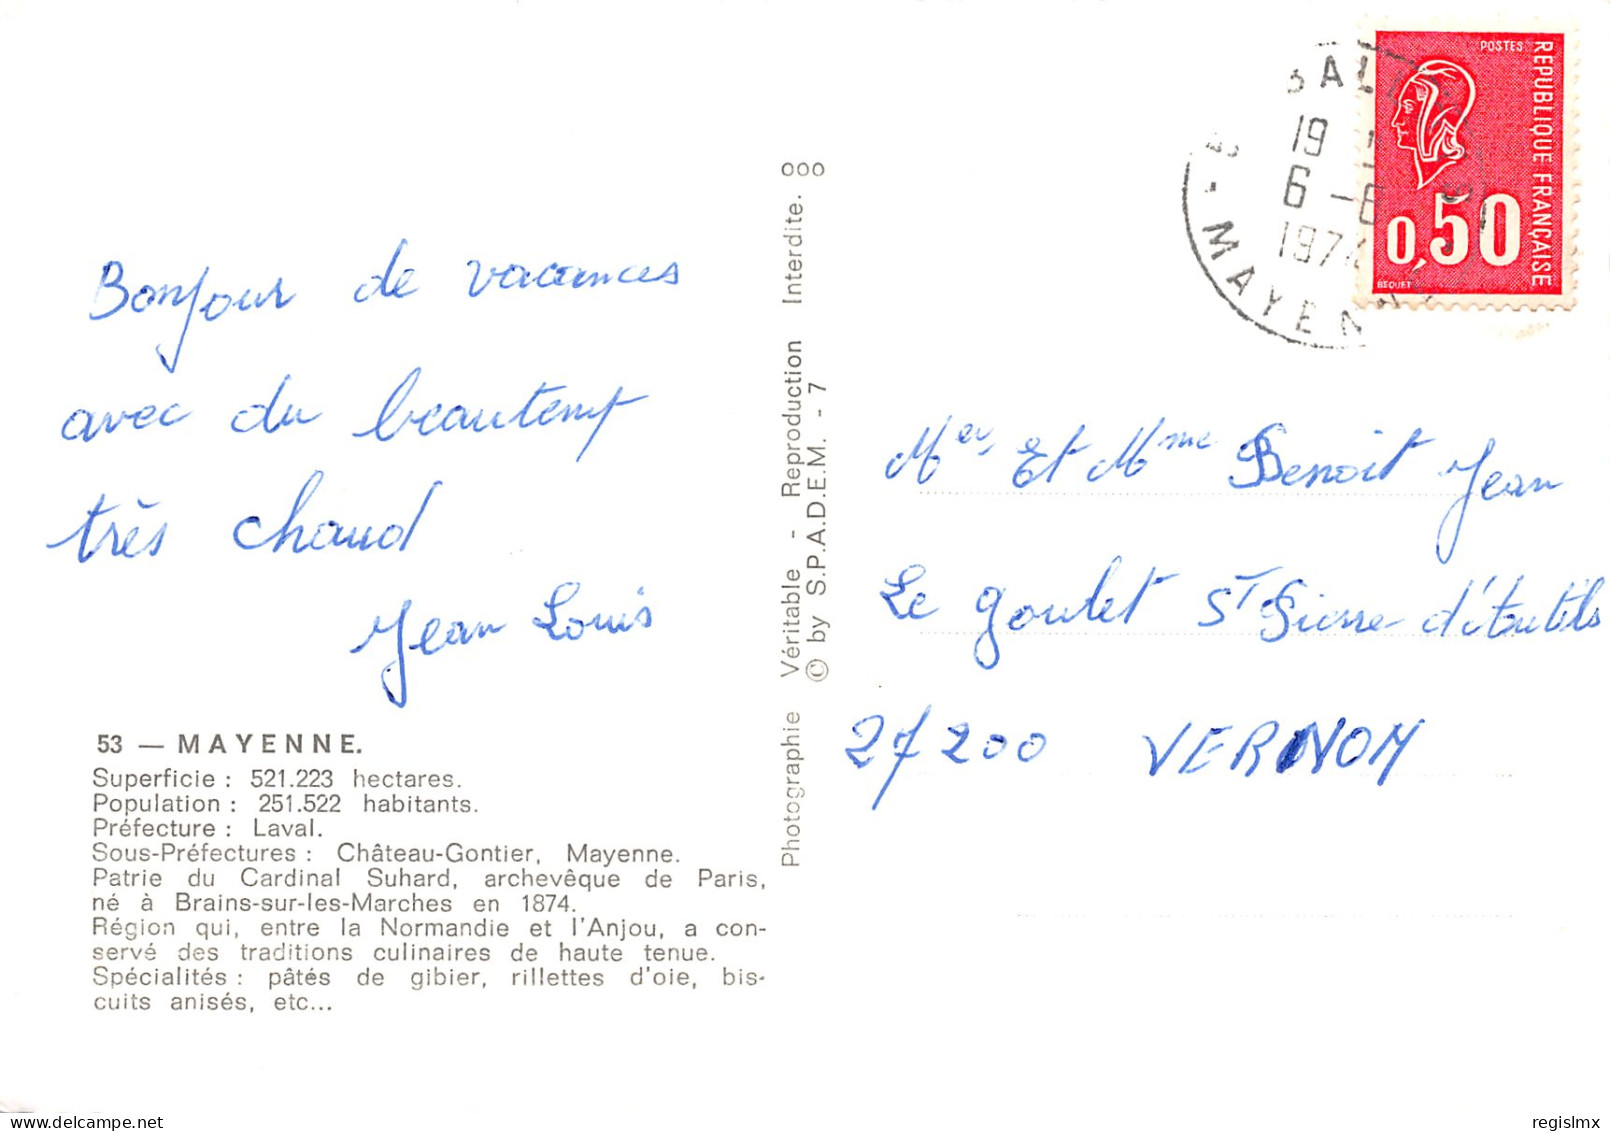 Bonjour de vacances
avec du beautemp
très chaud
Jean Louis
53 — MAYENNE.
Superficie : 521.223 hectares.
Population : 251.522 habitants.
Préfecture : Laval.
Sous-Préfectures : Château-Gontier, Mayenne.
Patrie du Cardinal Suhard, archevêque de Paris,
né à Brains-sur-les-Marches en 1874.
Région qui, entre la Normandie et l'Anjou, a con-
servé des traditions culinaires de haute tenue.
Spécialités : pâtés de gibier, rillettes d'oie, bis-
cuits anisés, etc...
Photographie Véritable - Reproduction Interdite. 000
© by S.P.A.D.E.M. - 7
19
6 - 6
1974
MAYENNE
POSTES
REPUBLIQUE FRANÇAISE
0,50
BEQUET
Mer et Mme Benoit Jean
Le goulet St Pierre d'autils
27200 VERNON
regislmx